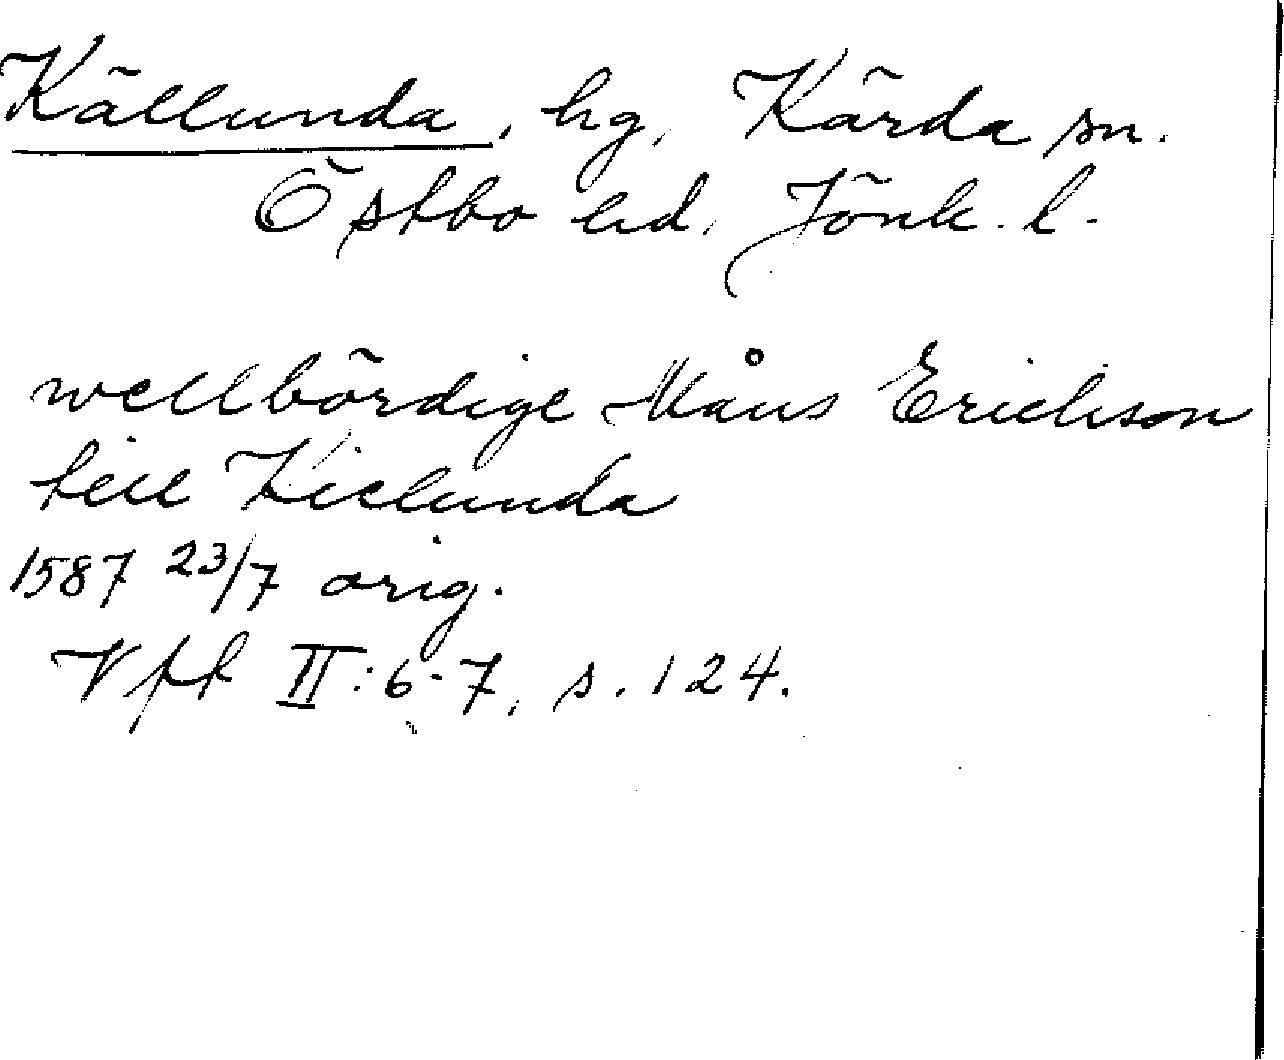 Källunda, hg, Kärda sn.
Östbo hd, Jönk. l.
wellbördige Måns Erichson
till Kielunda
1587 23/7 orig.
Vfk II:6-7, s. 124.